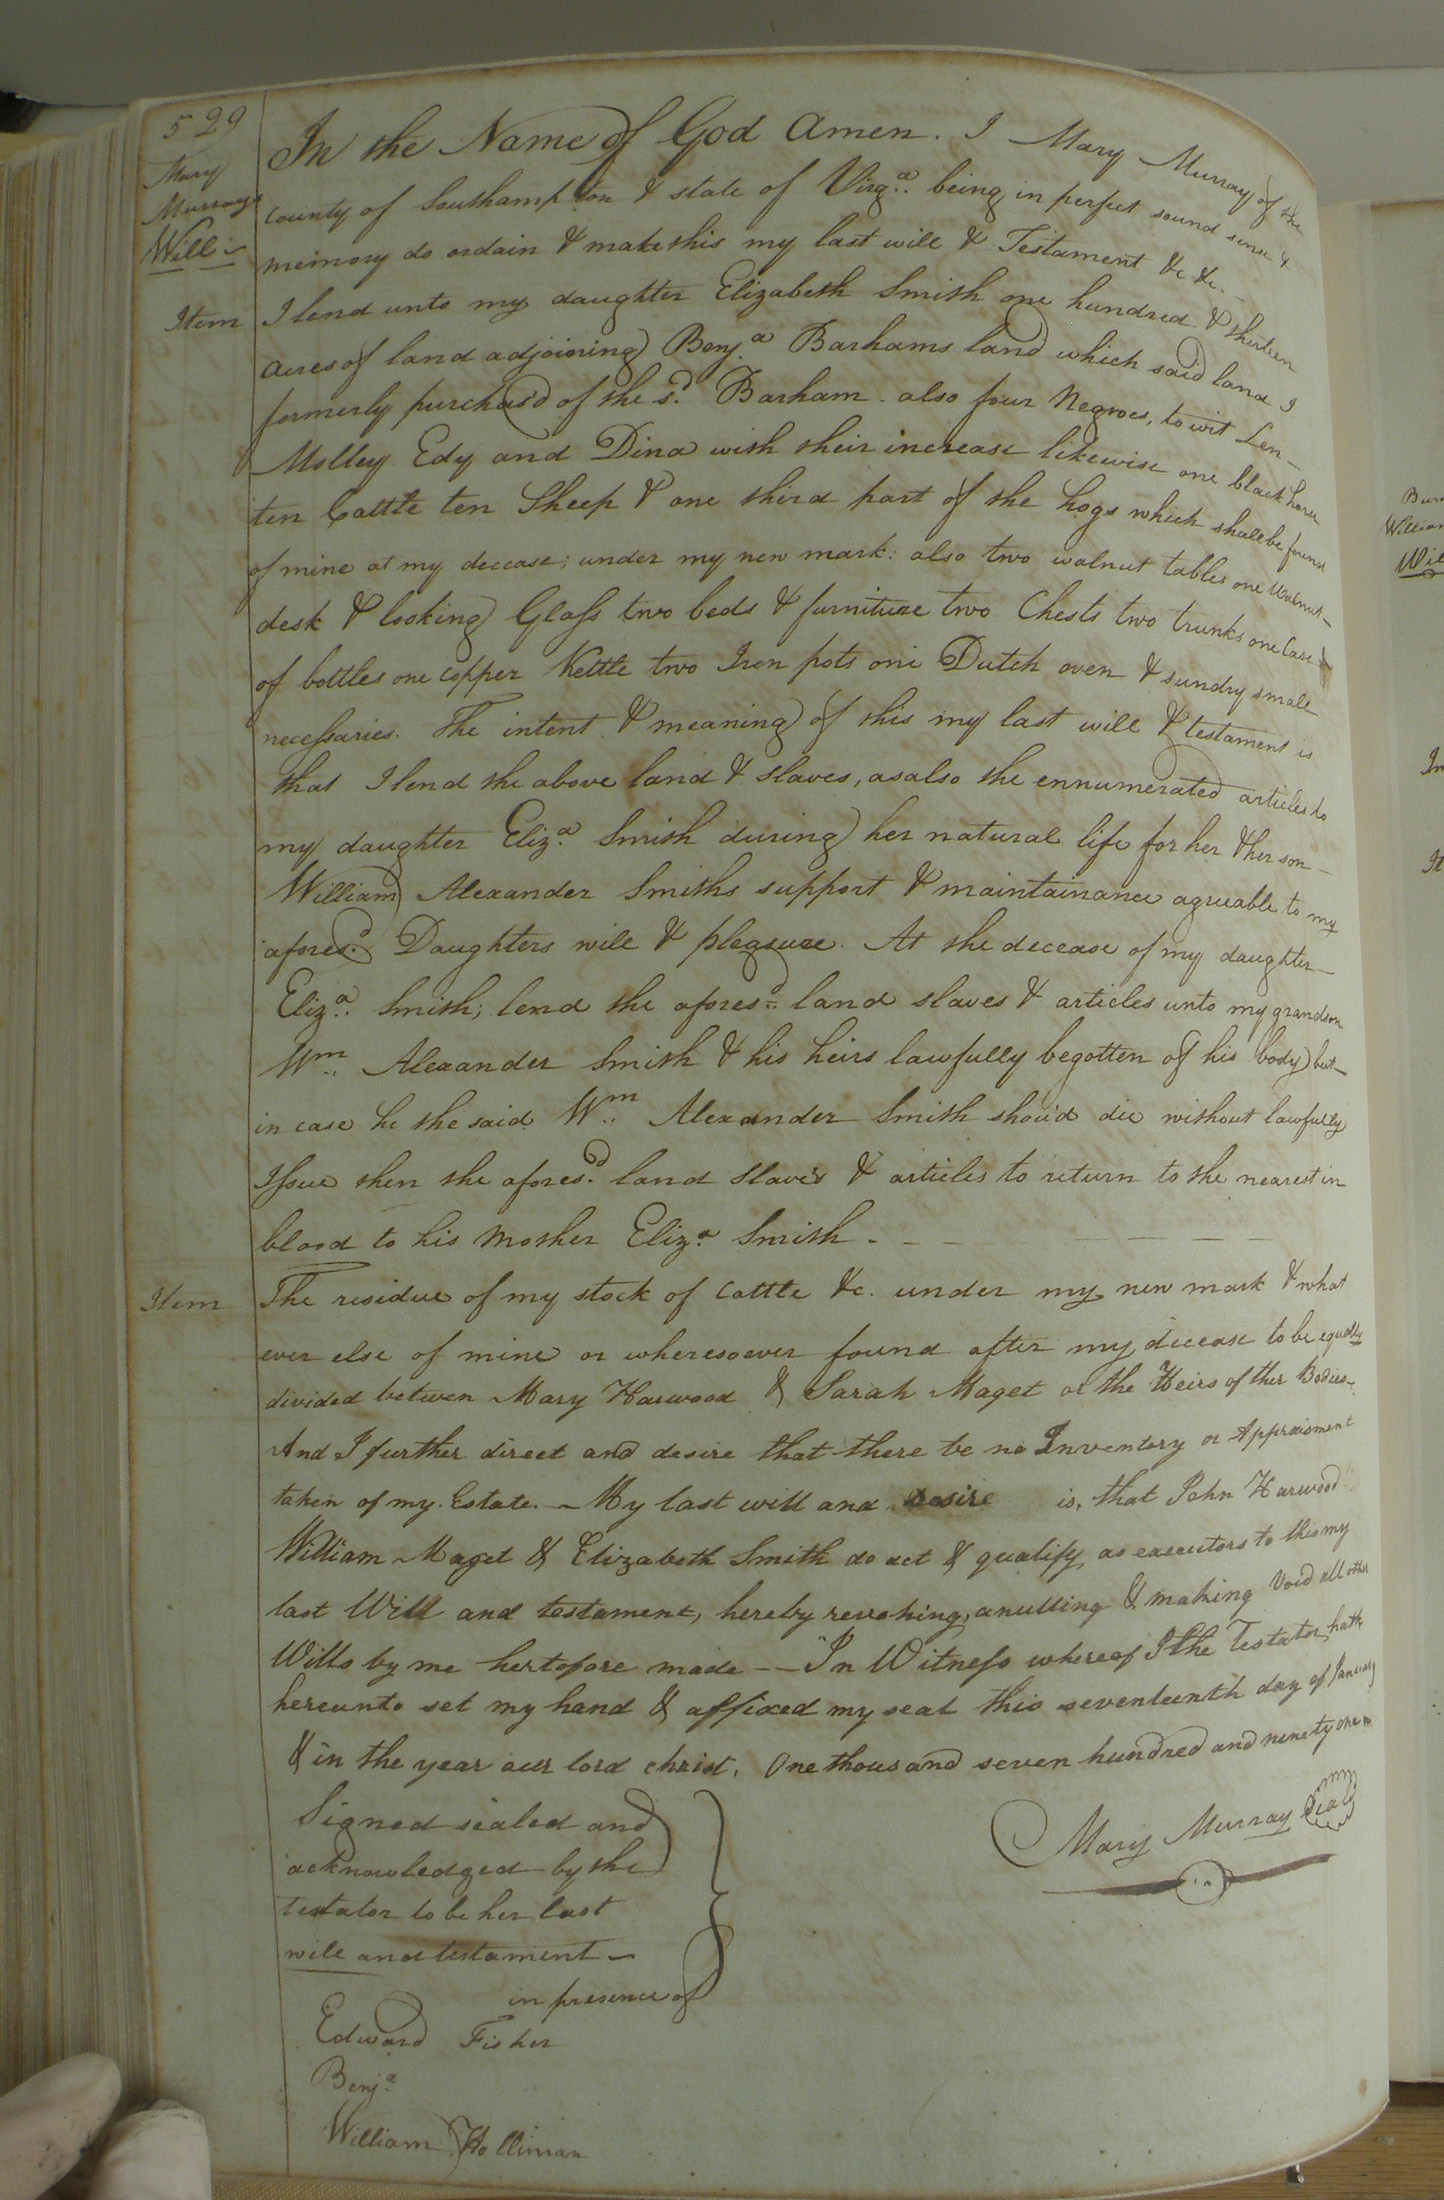 529
Mary
Murrays
Will
In the Name of God Amen. I Mary Murray of the
County of Southampton & state of Virga. being in perfect sound sense &
memory do ordain & make this my last will & Testament &c &c.
Item I lend unto my daughter Elizabeth Smith one hundred & thirteen
acres of land adjoining Benja. Barhams land which said land I
formerly purchasd of the sd. Barham. also four Negroes, to wit Len
Molley Edy and Dina with their increase likewise one black horse
ten Cattle ten Sheep & one third part of the hogs which shall be found
of mine at my decease; under my new mark: also two walnut tables one walnut
desk & looking Glass two beds & furniture two Chests two trunks one Case
of bottles one copper Kettle two Iron pots one Dutch oven & sundry small
necessaries. The intent & meaning of this my last will & testament is
that I lend the above land & slaves, as also the ennumerated articles to
my daughter Eliza. Smith during her natural life for her & her son
William Alexander Smiths support & maintainance agreable to my
aforesd. Daughters will & pleasure. At the decease of my daughter
Eliza. Smith; lend the aforesd. land slaves & articles unto my grandson
Wm. Alexander Smith & his heirs lawfully begotten of his body but
in case he the said Wm. Alexander Smith shou'd die without lawfully
Issue then the aforesd. land Slaves & articles to return to the nearest in
blood to his Mother Eliza. Smith - - -
Item The residue of my stock of Cattle &c. under my new mark & what
ever else of mine or wheresoever found after my decease to be equally
divided between Mary Harwood & Sarah Maget or the Heirs of ther Bodies
And I further direct and desire that there be no Inventory or Appraisment
taken of my Estate. - My last will and desire is, that John Harwood
William Maget & Elizabeth Smith do act & qualify as executors to this my
last Will and testament, hereby revoking, anulling & making Void all other
Wills by me hertofore made -- In Witness whereof I the Testator hath
hereunto set my hand & affixed my seal this seventeenth day of January
& in the year our lord christ. One thousand seven hundred and ninety one
Signed sealed and
acknowledged by the
testator to be her last
will and testament -
in presence of
Mary Murray Seal
Edward Fisher
Benja.
William Holliman
Will